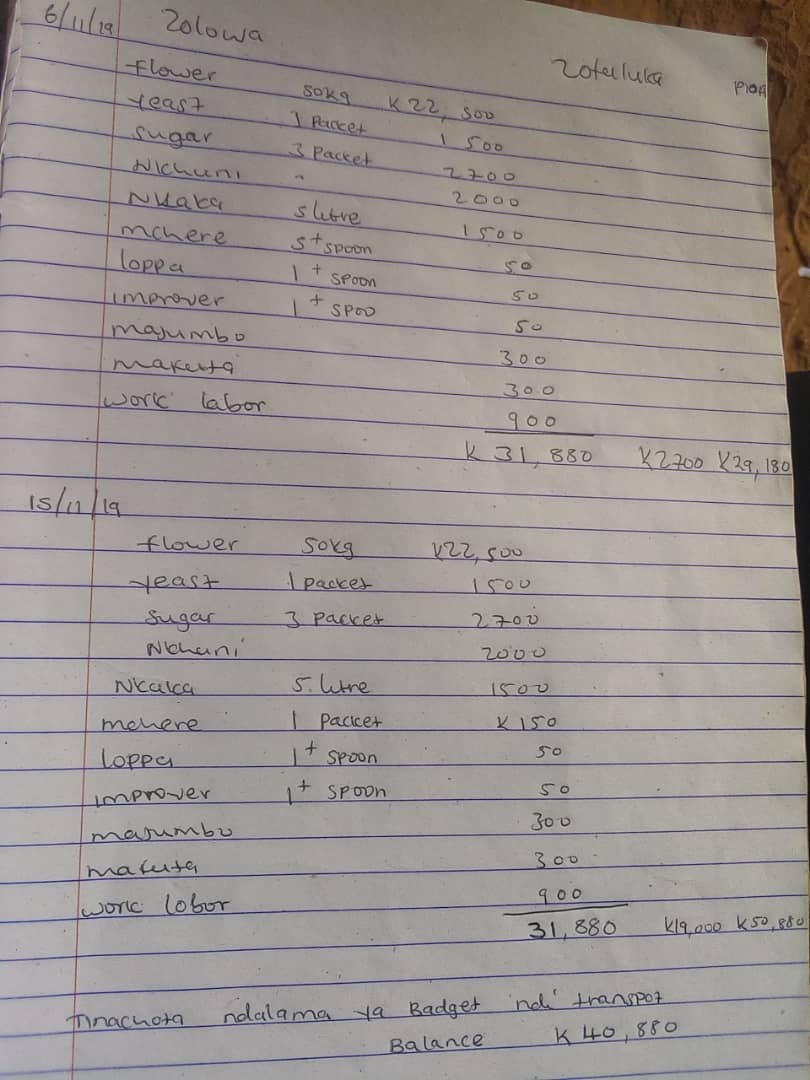 6/11/19 Zolowa Zotuluka
flower 50kg K22,500
yeast 1 Packet 1500
sugar 3 Packet 2700
Nkhuni " 2000
Nkaka 5 litre 1500
mchere 5 + spoon 50
loppa 1 + spoon 50
improver 1 + spoo 50
masumbo 300
makuta 300
work labor 900
K 31,880 K2700 K29,180
15/11/19
flower 50kg K22,500
yeast 1 packet 1500
sugar 3 packet 2700
Nkhuni 2000
Nkaka 5. litre 1500
mchere 1 packet K150
loppa 1 + spoon 50
improver 1 + spoon 50
masumbo 300
makuta 300
work lobor 900
31,880 K19,000 K50,880
Tinachota ndalama ya Badget ndi transpot
Balance K 40,880